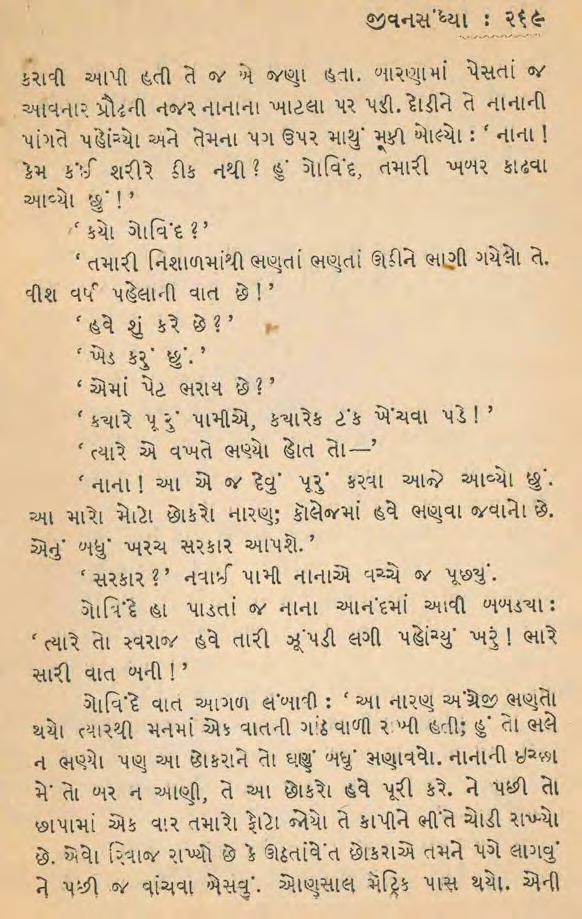 જીવનસંધ્યા : ૨૬૯
કરાવી આપી હતી તે જ એ જણા હતા. બારણામાં પેસતાં જ
આવનાર પ્રૌઢની નજર નાનાના ખાટલા પર પડી. દોડીને તે નાનાની
પાંગતે પહોંચ્યો અને તેમના પગ ઉપર માથું મૂકી બોલ્યો : ‘ નાના !
કેમ કંઈ શરીરે ઠીક નથી ? હું ગોવિંદ, તમારી ખબર કાઢવા
આવ્યો છું ! ’
‘ કયો ગોવિંદ ? ’
‘ તમારી નિશાળમાંથી ભણતાં ભણતાં ઊઠીને ભાગી ગયેલો તે.
વીશ વર્ષ પહેલાની વાત છે ! ’
‘ હવે શું કરે છે ? ’
‘ ખેડ કરું છું. ’
‘ એમાં પેટ ભરાય છે ? ’
‘ ક્યારે પૂરું પામીએ, ક્યારેક ટંક ખેંચવા પડે ! ’
‘ ત્યારે એ વખતે ભણ્યો હોત તો—’
‘ નાના ! આ એ જ દેવું પૂરું કરવા આજે આવ્યો છું.
આ મારો મોટો છોકરો નારણ; કૉલેજમાં હવે ભણવા જવાનો છે.
એનું બધું ખરચ સરકાર આપશે. ’
‘ સરકાર ? ’ નવાઈ પામી નાનાએ વચ્ચે જ પૂછ્યું.
ગોવિંદે હા પાડતાં જ નાના આનંદમાં આવી બબડ્યા :
‘ ત્યારે તો સ્વરાજ હવે તારી ઝૂંપડી લગી પહોંચ્યું ખરું ! ભારે
સારી વાત બની ! ’
ગોવિંદે વાત આગળ લંબાવી : ‘ આ નારણ અંગ્રેજી ભણતો
થયો ત્યારથી મનમાં એક વાતની ગાંઠ વાળી રાખી હતી; હું તો ભલે
ન ભણ્યો પણ આ છોકરાને તો ઘણું બધું ભણાવવો. નાનાની ઇચ્છા
મેં તો બર ન આણી, તે આ છોકરો હવે પૂરી કરે. ને પછી તો
છાપામાં એક વાર તમારો ફોટો જોયો તે કાપીને ભીંતે ચોડી રાખ્યો
છે. એવો રિવાજ રાખ્યો છે કે ઊઠતાંવેંત છોકરાએ તમને પગે લાગવું
ને પછી જ વાંચવા બેસવું. ઓણસાલ મૅટ્રિક પાસ થયો. એની